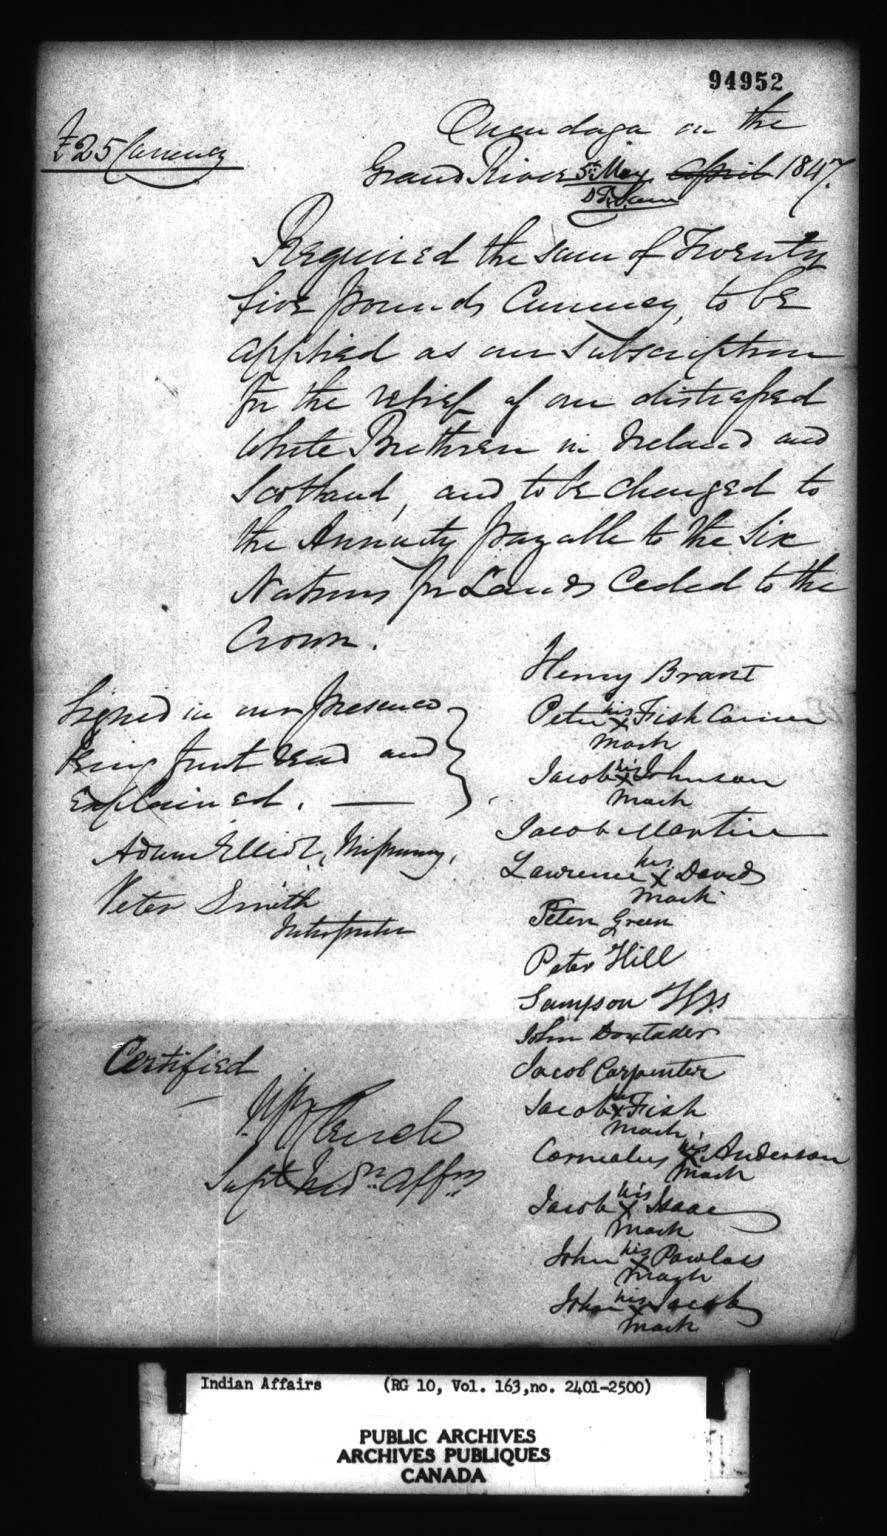 94952
£25 Currency
Onondaga on the
Grand River 5th May April 1847.
Required the sum of Twenty
five pounds Currency, to be
applied as our Subscription
for the relief of our distressed
White Brethren in Ireland and
Scotland, and to be charged to
the Annuity payable to the Six
Nations for Lands Ceded to the
Crown.
Henry Brant
Peter his x mark Fish Carrier
Jacob his x mark Johnson
Jacob Martin
Lawrence his x mark Davids
Peter Green
Peter Hill
Sampson
John Doxtader
Jacob Carpenter
Jacob his x mark Fish
Cornelius his x mark Anderson
Jacob his x mark Isaac
John his x mark Powlass
John his x mark Jacob
Signed in our presence
being first read and
explained.
Adam Elliot, Missionary.
Peter Smith
Interpreter
Certified
Supt Indn Affrs
Indian Affairs (RG 10, Vol. 163, no. 2401-2500)
PUBLIC ARCHIVES
ARCHIVES PUBLIQUES
CANADA